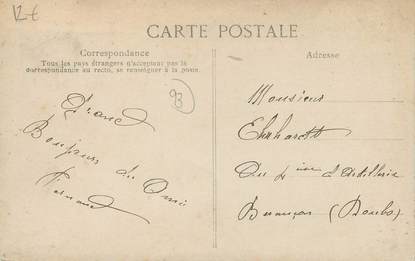 12 €
CARTE POSTALE
Correspondance
Tous les pays étrangers n'acceptant pas la
correspondance au recto, se renseigner à la poste.
Adresse
93
Bonjour du Amie
Fernand
Monsieur
Ehrharett
Au 4 ème d'Artillerie
Besançon (Doubs)